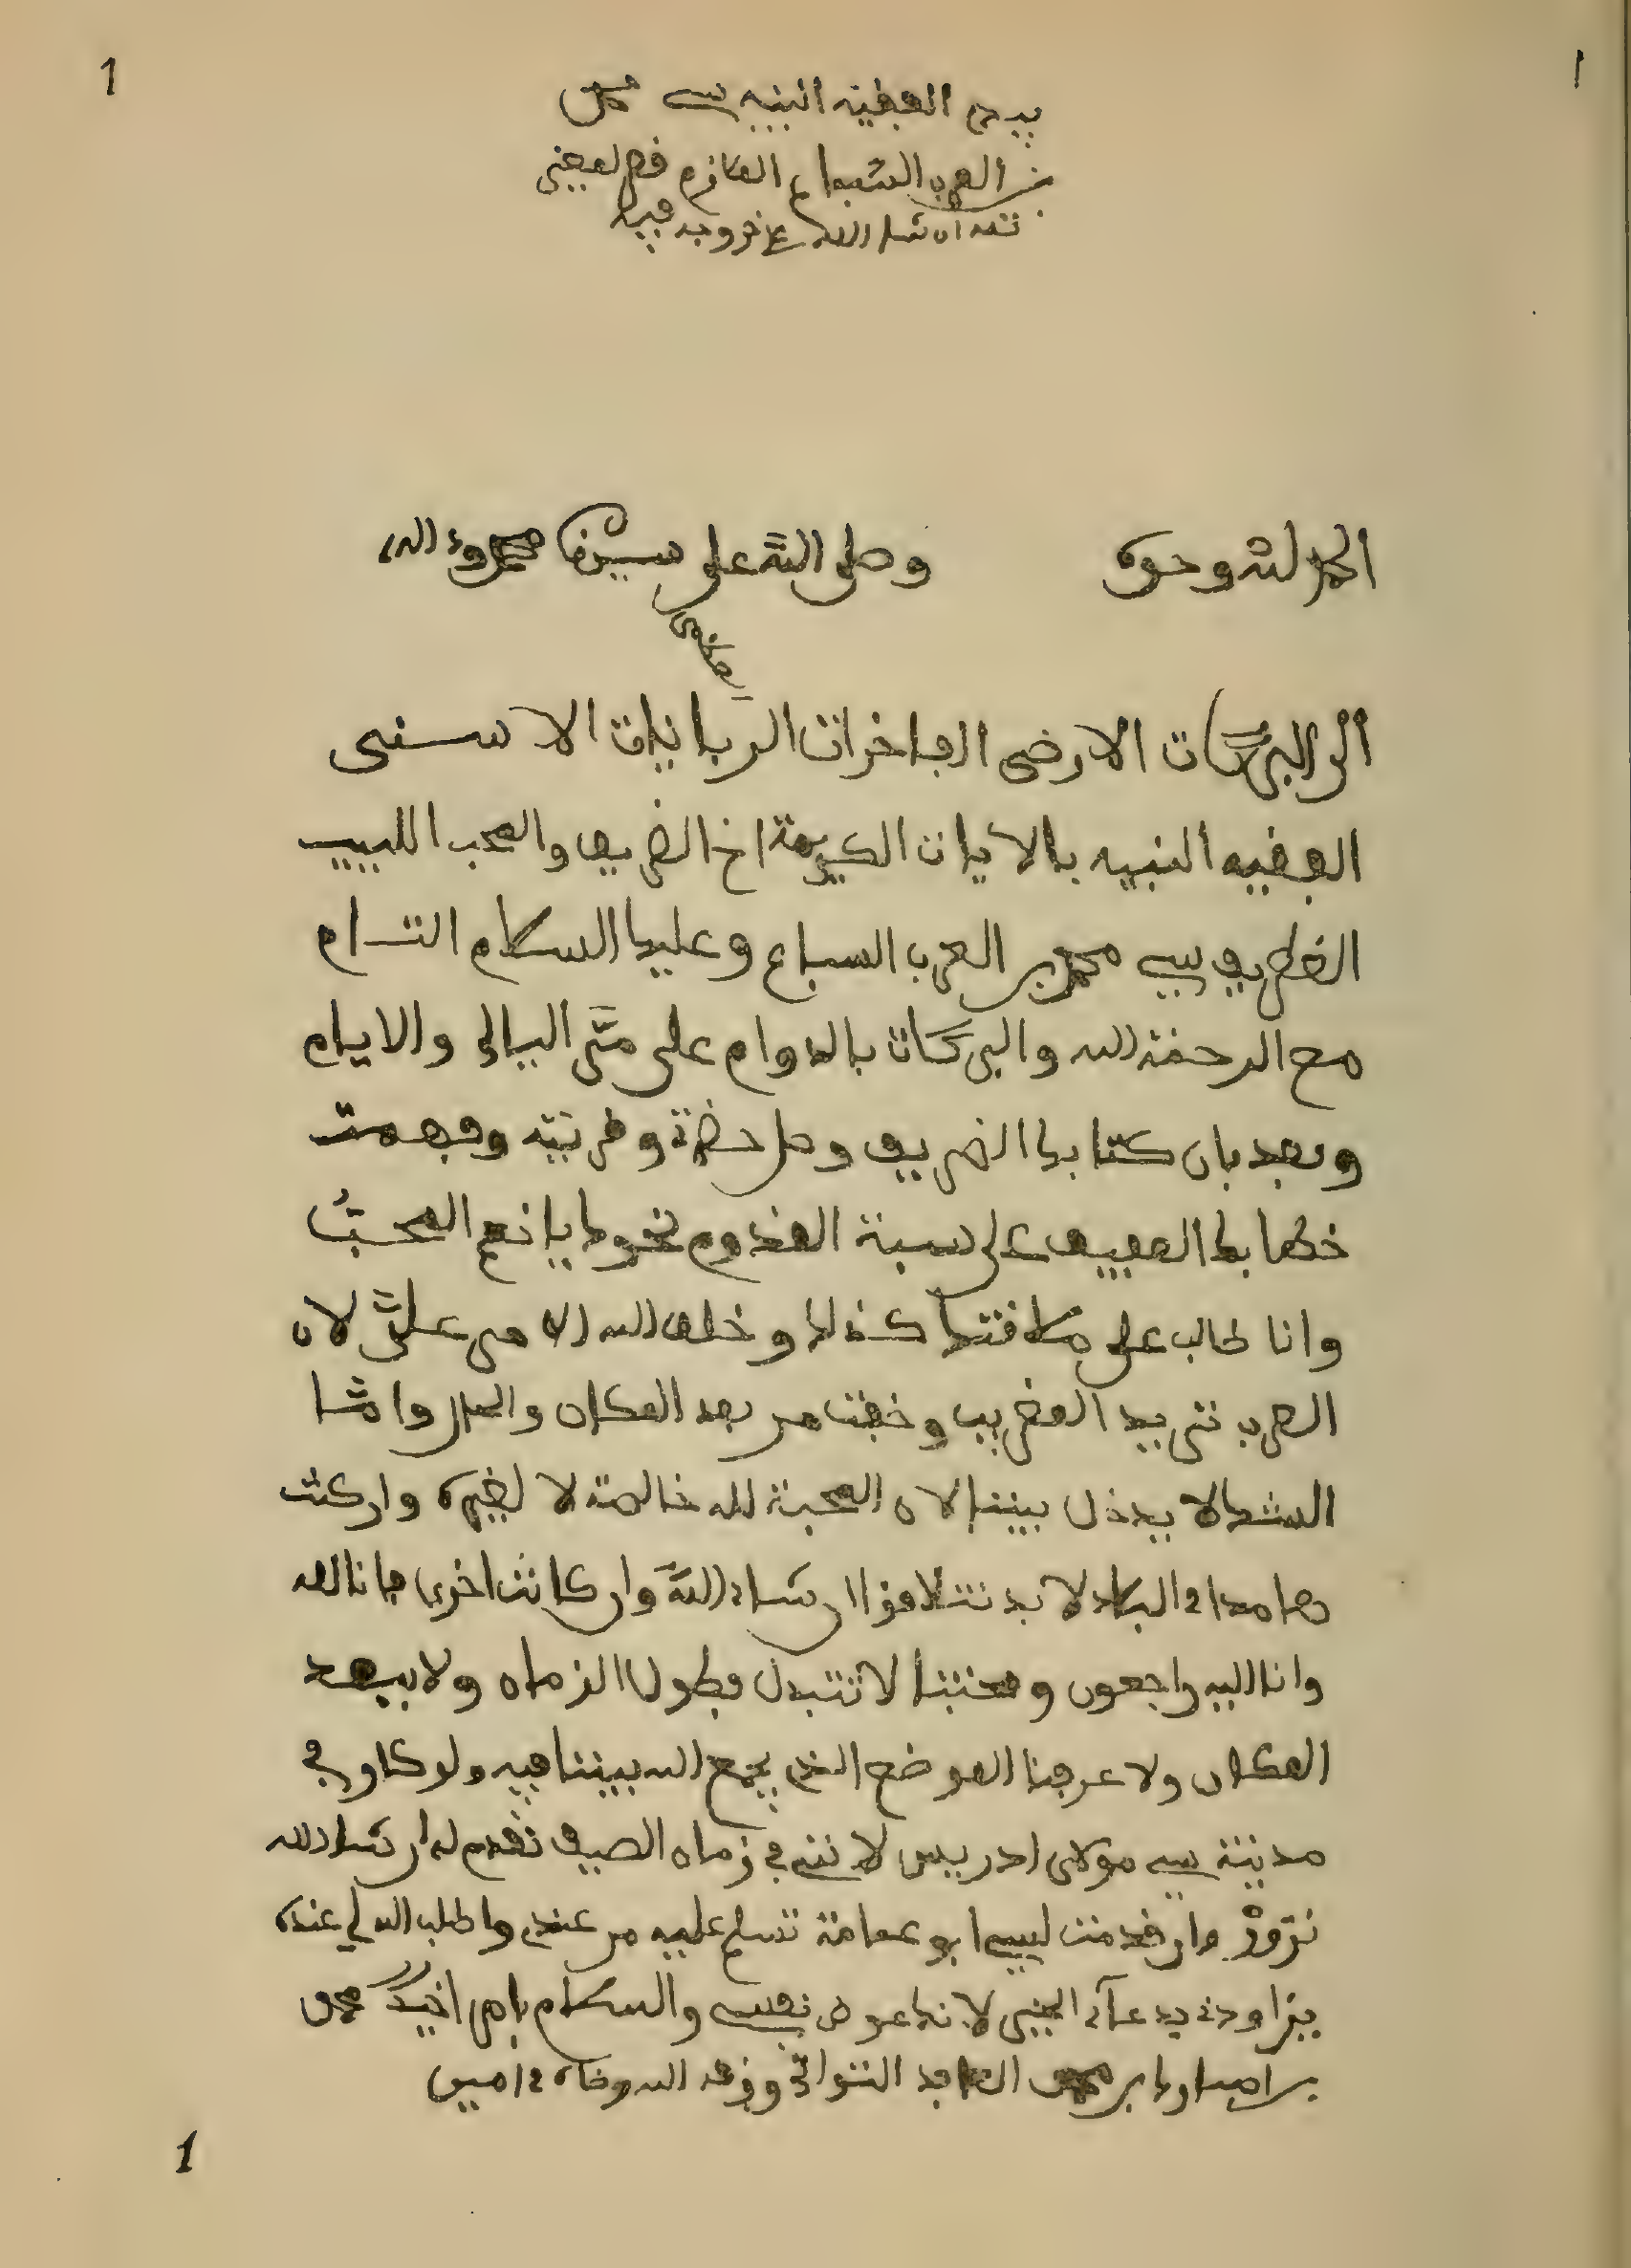 1
1
يد الفقيه النبيه سي محمد
بن العرب السباع
نعم ان شاء الله
الحمد لله وحده وصلى الله على سيدنا محمد وءاله
الى البركات الارضى الفاخرات الربانيات الاسنى
الفقيه النبيه بالايات الكريمة اخ الضريف والمحب اللبيب
الضريف سي محمد بن العرب السباع وعليك السلام التام
مع الرحمة الله والبركات بالدوام على متى اليالى والايام
وبعد فان كتابك الضريف وصل حضرة وفريته وفهمت
خطابك العفيف على سبة القدوم نحوك يا نعم المحب
وانا طالب على ملاقتك كذلك وخلف الله الا من على لان
العرب تريد المغريب وخفت من بعد المكان والحال وامّا
الشك لا يدخل بيننا لان المحبة لله خالصة لا لغيره وان كنت
هامدا في البلاد لا بد نتلاقوا ان شاء الله وان كانت اخرى فانا لله
وانا اليه راجعون ومحبتنا لا تتبدل بطول الزمان ولا ببعد
المكان ولا عرفنا الموضع الذي يجمع الله بيننا فيه ولو كان في
مدينة سي مولاى ادريس لانني في زمان الصيف نقدم له ان شاء الله
نزور وان قدمت لسي ابو عمامة تسلم عليه من عندي واطلب الله لي عنده
والسلام بامر اخيك محمد
بن محمد التواتي وفقه الله ءامين
1